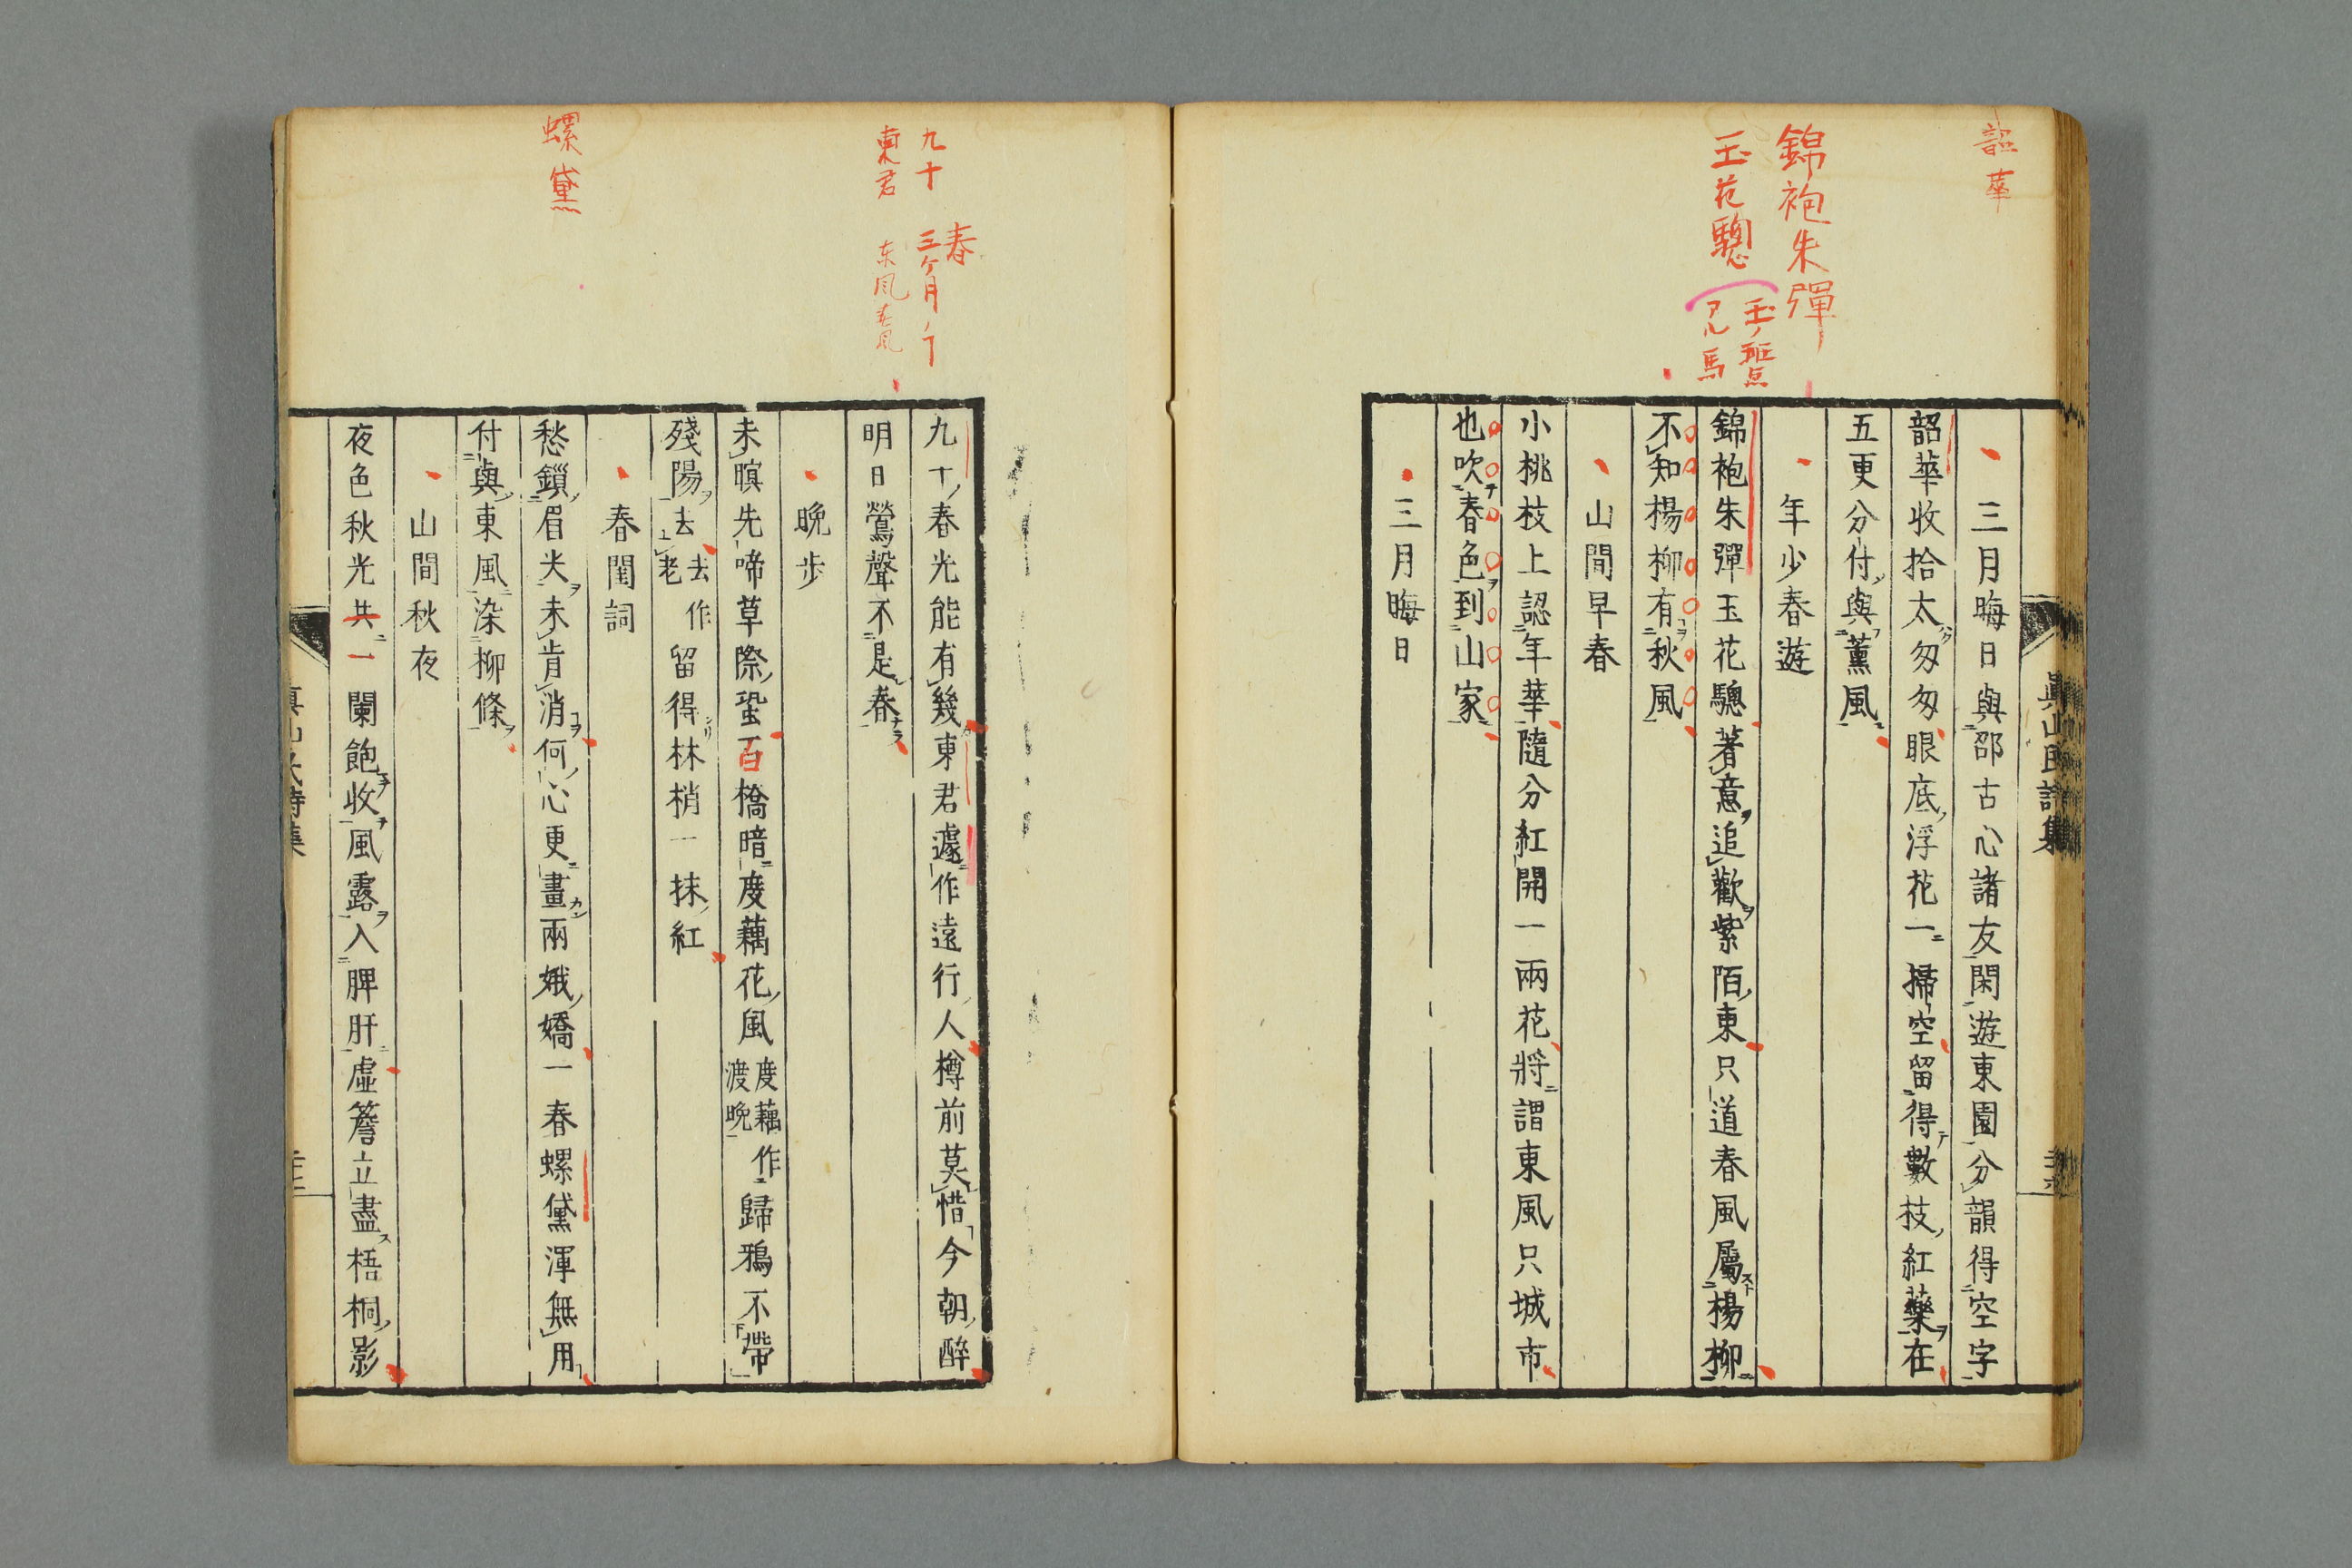 韶華
錦袍朱彈
玉花驄
玉ノ班点
アル馬
眞山民詩集
三月晦日與邵古心諸友閑遊東園分韻得空字
韶華收拾太匆匆眼底浮花一掃空留得數枝紅藥在
五更分付與薰風
年少春遊
錦袍朱彈玉花驄著意追歡紫陌東只道春風屬楊柳
不知楊柳有秋風
山間早春
小桃枝上認年華隨分紅開一兩花將謂東風只城市
也吹春色到山家
三月晦日
九十
春
三ケ月ノ
東君
東風春風
螺黛
九十春光能有幾東君遽作遠行人樽前莫惜今朝醉
明日鶯聲不是春
晩步
未暝先啼草際蛩百橋暗度藕花風度藕作渡晩歸鴉不帶
殘陽去去作老留得林梢一抹紅
春閨詞
愁鎖眉尖未肯消何心更畫兩娥嬌一春螺黛渾無用
付與東風染柳條
山間秋夜
夜色秋光共一闌飽收風露入脾肝虛簷立盡梧桐影
眞山民詩集